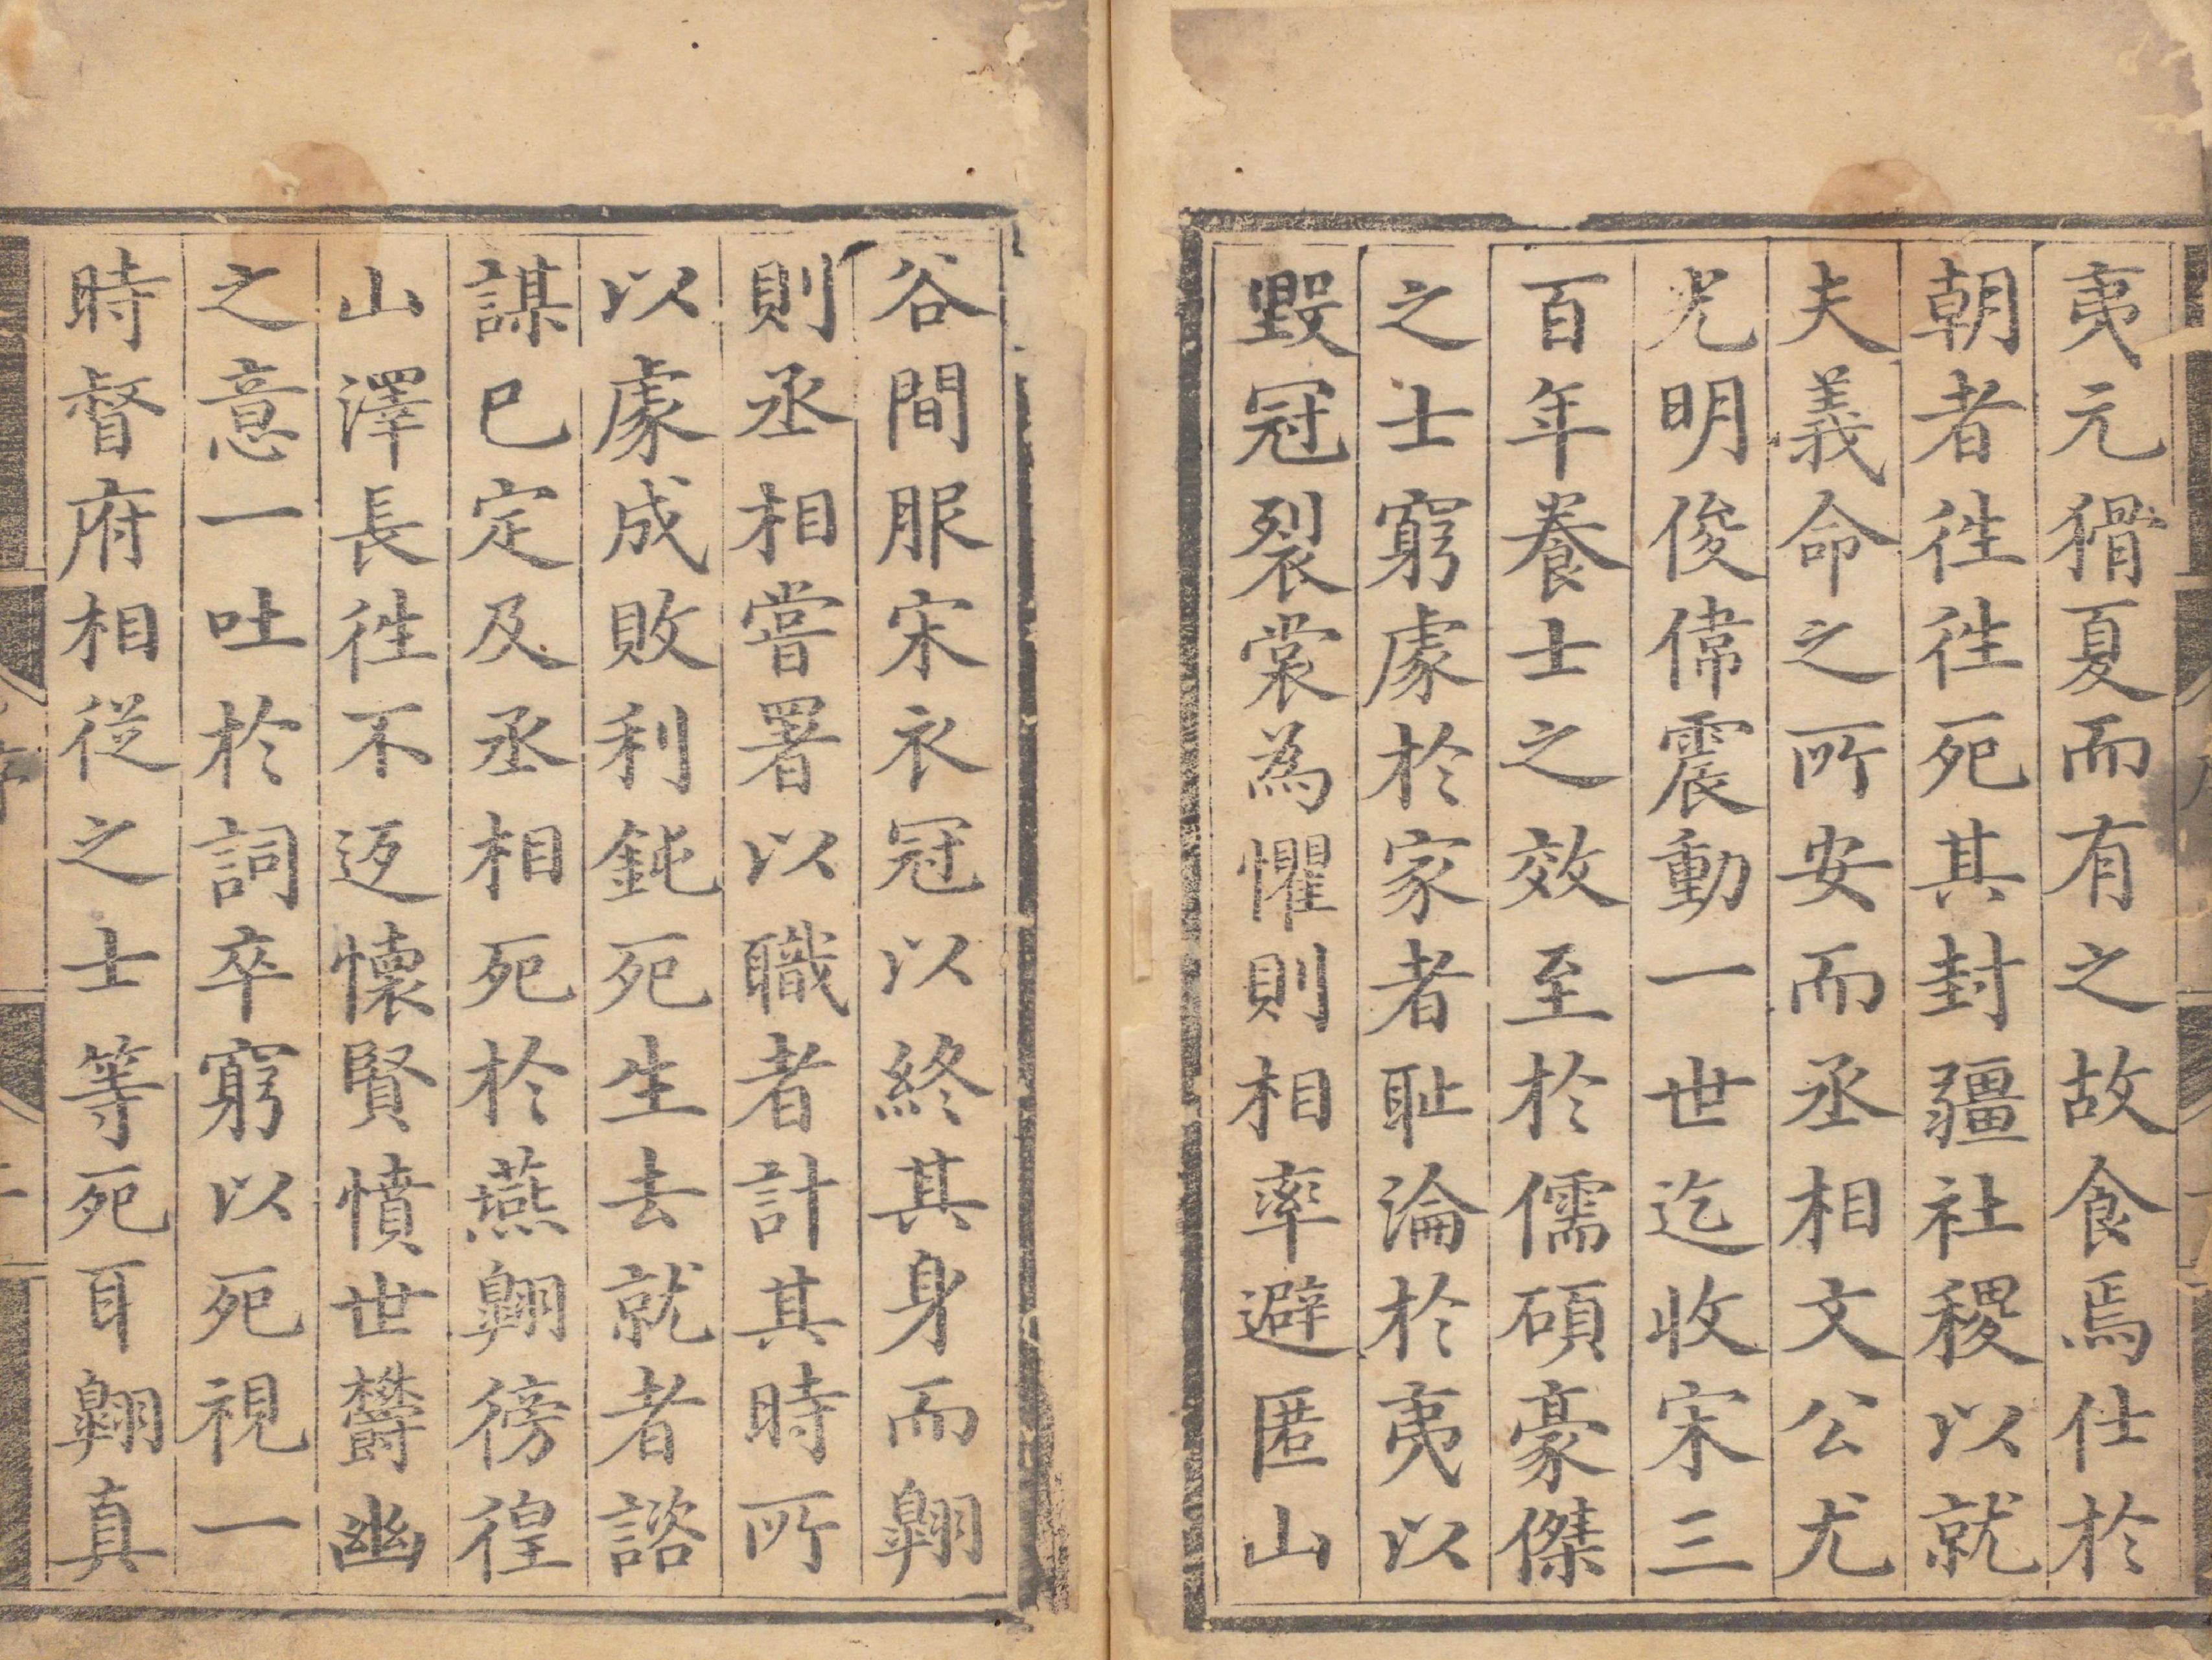 夷元猾夏而有之故食焉仕於
朝者徃徃死其封疆社稷以就
夫義命之所安而丞相文公尤
光明俊偉震動一世迄收宋三
百年養士之效至於儒碩豪傑
之士窮處於家者耻淪於夷以
毀冠裂裳為懼則相率避匿山
谷間服宋衣冠以終其身而翺
則丞相嘗署以職者計其時所
以處成敗利鈍死生去就者諮
謀已定及丞相死於燕翺徬徨
山澤長徃不返懷賢憤世欝幽
之意一吐於詞卒窮以死視一
時督府相從之士等死耳翺真